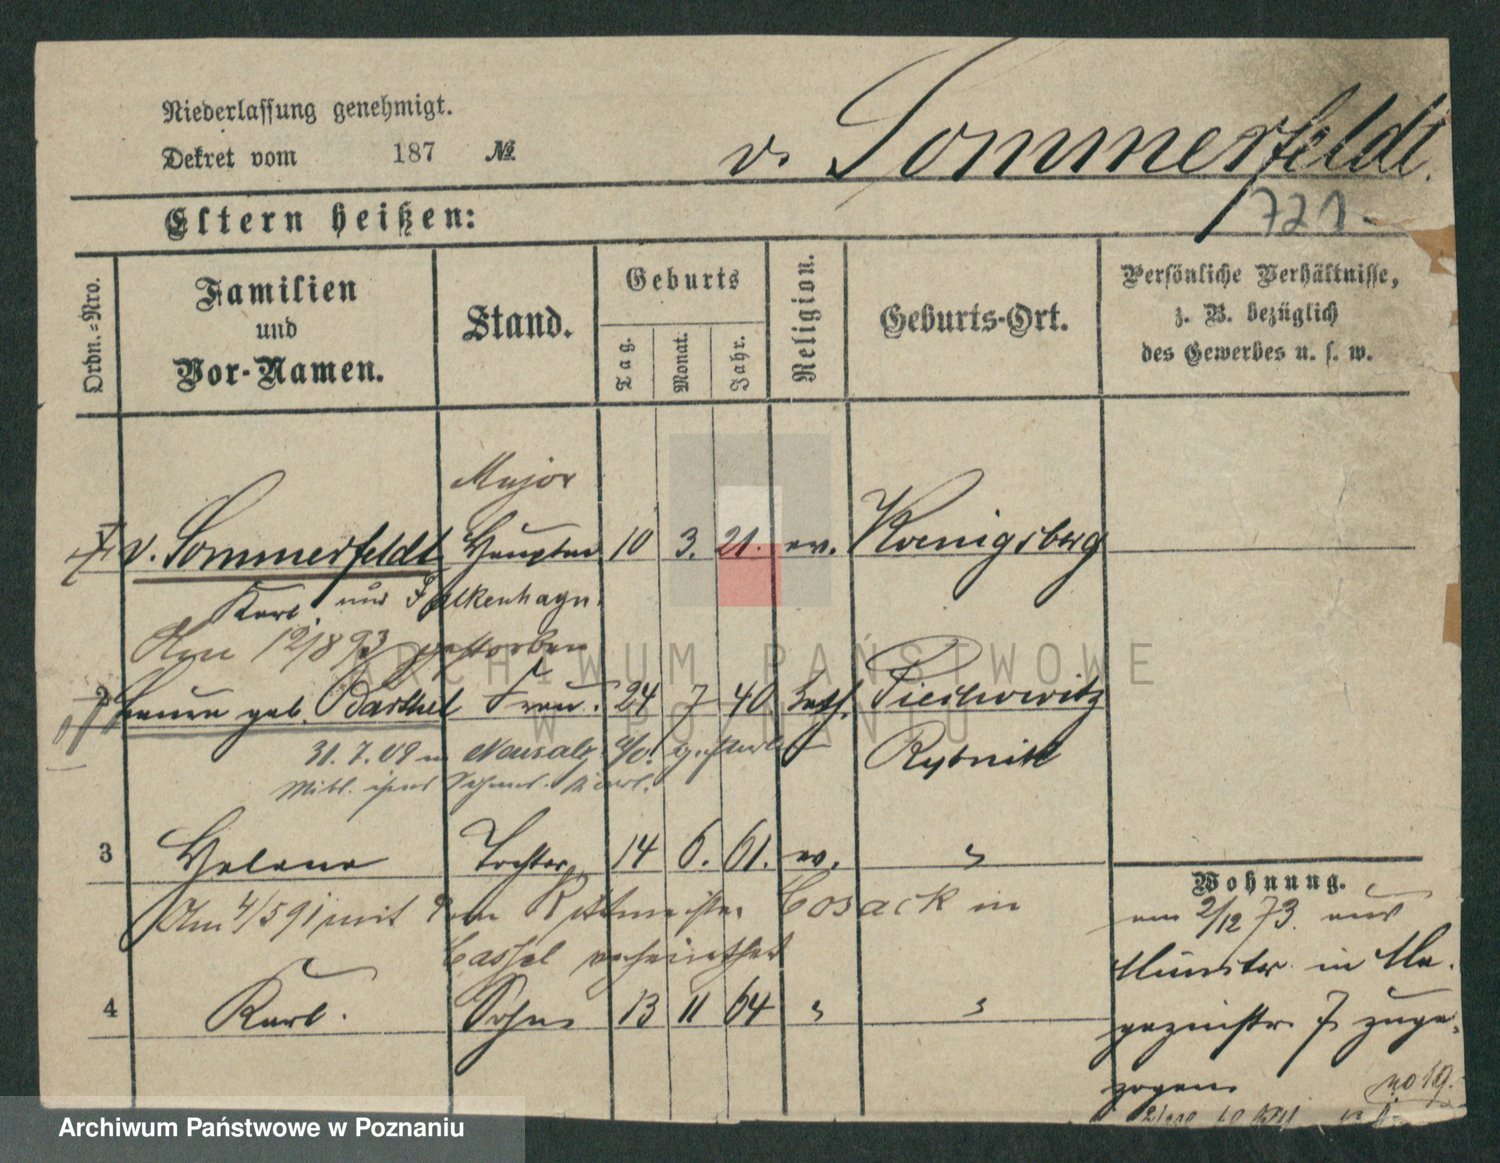 Niederlassung genehmigt.
Dekret vom 187 №
v. Sommerfeldt.
721.
Eltern heißen:
Ordn.-Nro.
Familien und Vor-Namen.
Stand.
Geburts
Tag.
Monat.
Jahr.
Religion.
Geburts-Ort.
Persönliche Verhältnisse,
z. B. bezüglich
des Gewerbes u. s. w.
Major
v. Sommerfeldt Hauptm 10 3. 21. ev. Koenigsberg
Karl. und Falkenhayn.
12/8 93 gestorben
2 geb. Barthel Frau. 24 7 40. kath. Pieckowitz
31.7.09 in Neusalz a/O. gestorben
Rybnik
Mitl. ihres Sohnes Karl.
3 Helene Tochter 14 6. 61. ev. "
Am 4/5 91 mit dem Rittmeister Cosack in
Cassel verheirathet
4 Karl. Sohn 13 11 64 " "
Wohnung.
am 2/12 73. aus
Münster in Ma-
gazinstr. 7 zuge-
zogen
no 19.
ARCHIWUM PAŃSTWOWE
W POZNANIU
Archiwum Państwowe w Poznaniu